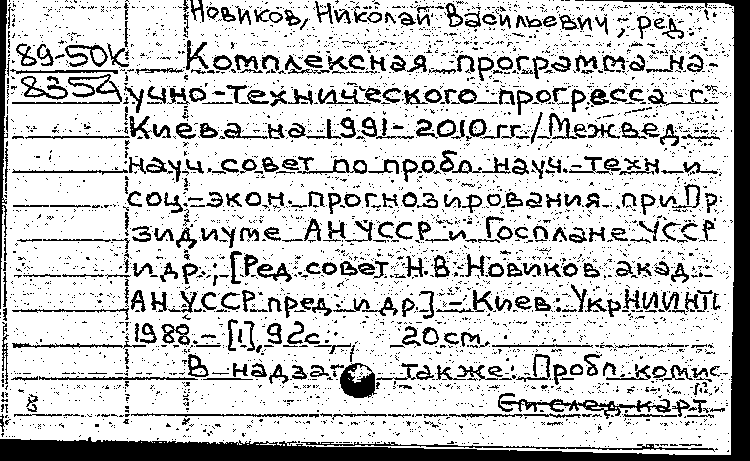 Новиков, Николай Васильевич, ред.
89-50к
8354
Комплексная программа на-
учно-технического прогресса г.
Киева на 1991-2010 гг. / Межвед.
науч. совет по пробл. науч.-техн. и
соц.-экон. прогнозирования при Пр
зидиуме АН УССР и Госплане УССР
и др.; [Ред. совет Н.В. Новиков акад.
АН УССР пред. и др.] - Киев: УкрНИИНТИ
1988. - [1], 92с.; 20см.
В надзаг также: Пробл. комис
8
См. след. карт